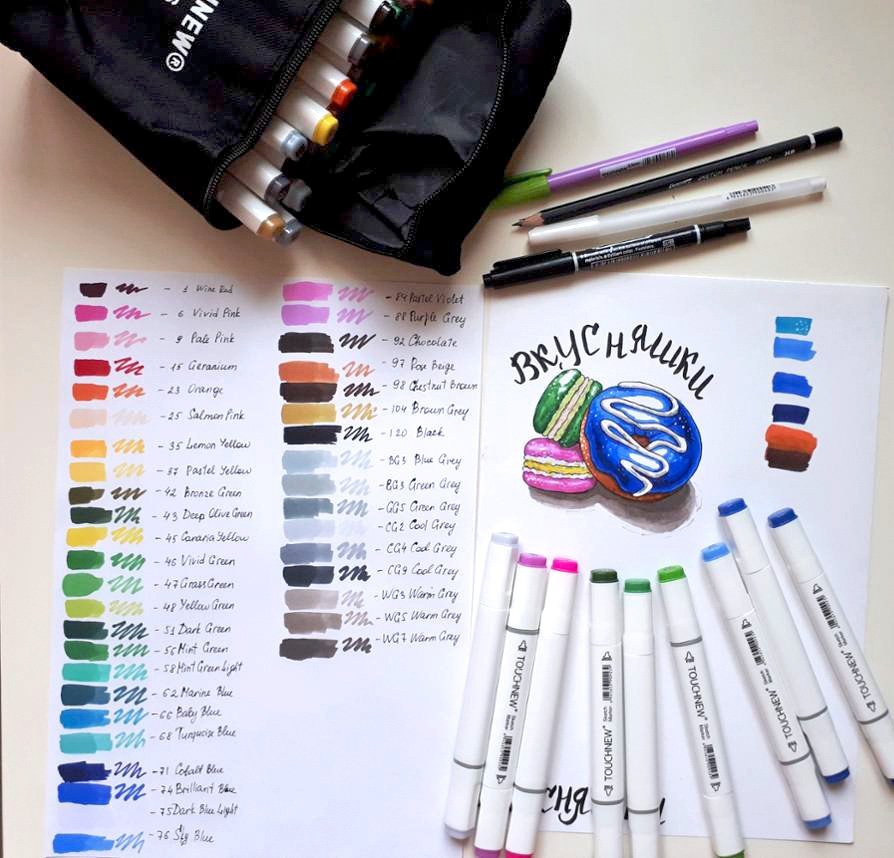 NEW®
- 1 Wine Red
- 6 Vivid Pink
- 9 Pale Pink
- 15 Geranium
- 23 Orange
- 25 Salmon Pink
- 35 Lemon Yellow
- 37 Pastel Yellow
- 42 Bronze Green
- 43 Deep Olive Green
- 45 Canaria Yellow
- 46 Vivid Green
- 47 Grass Green
- 48 Yellow Green
- 51 Dark Green
- 56 Mint Green
- 58 Mint Green Light
- 62 Marine Blue
- 66 Baby Blue
- 68 Turquoise Blue
- 71 Cobalt Blue
- 74 Brilliant Blue
- 75 Dark Blue Light
- 76 Sky Blue
- 84 Pastel Violet
- 88 Purple Grey
- 92 Chocolate
- 97 Rose Beige
- 98 Chestnut Brown
- 104 Brown Grey
- 120 Black
- BG3 Blue Grey
- BG3 Green Grey
- GG5 Green Grey
- CG2 Cool Grey
- CG4 Cool Grey
- CG9 Cool Grey
- WG3 Warm Grey
- WG5 Warm Grey
- WG7 Warm Grey
ВКУСНЯШКИ
TOUCHNEW® Sketch Marker
TOUCHNEW® Sketch Marker
TOUCHNEW® Sketch Marker
TOUCHNEW®
TOUCHNEW®